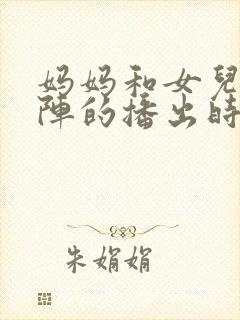 妈妈和女兒
陣的播出時
朱娟娟